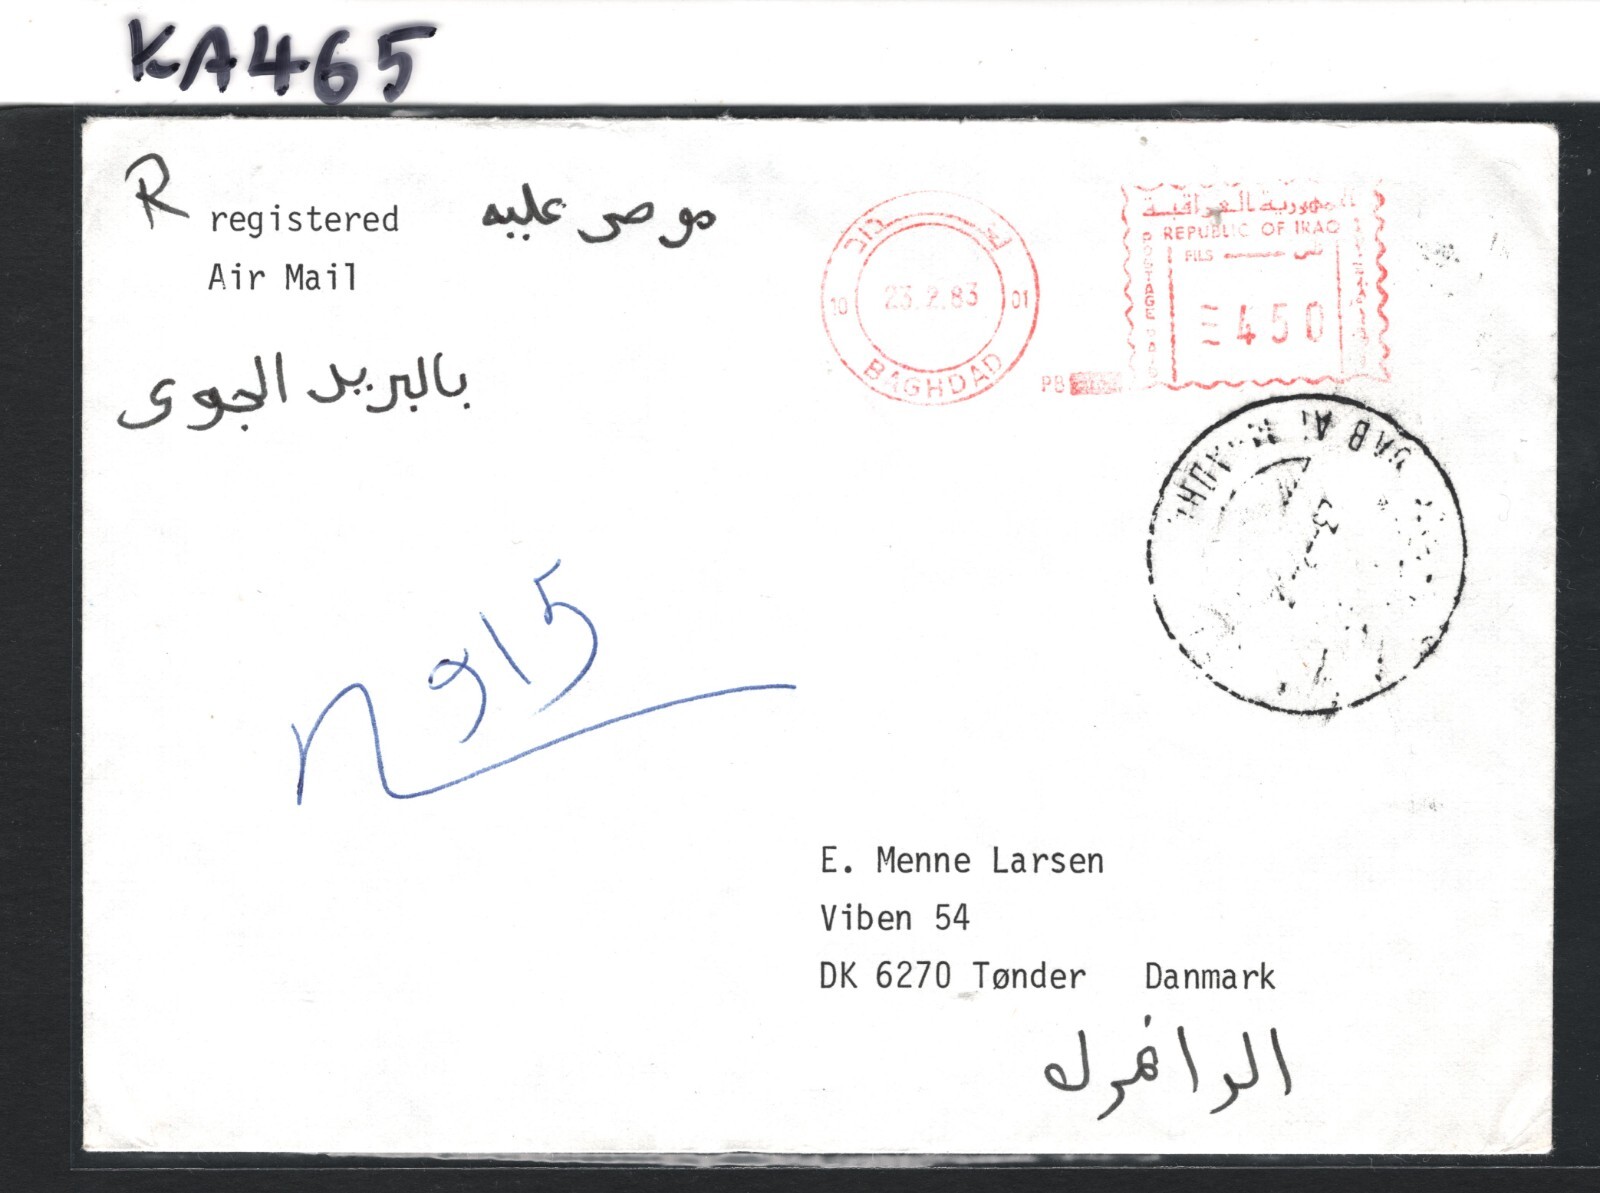 KA465
R registered
موصى عليه
Air Mail
بالبريد الجوى
10 23.2.83 01
BAGHDAD
الجمهورية العراقية
REPUBLIC OF IRAQ
FILS فلس
POSTAGE PAID
≡450
PB
915
E. Menne Larsen
Viben 54
DK 6270 Tønder Danmark
الدانمرك